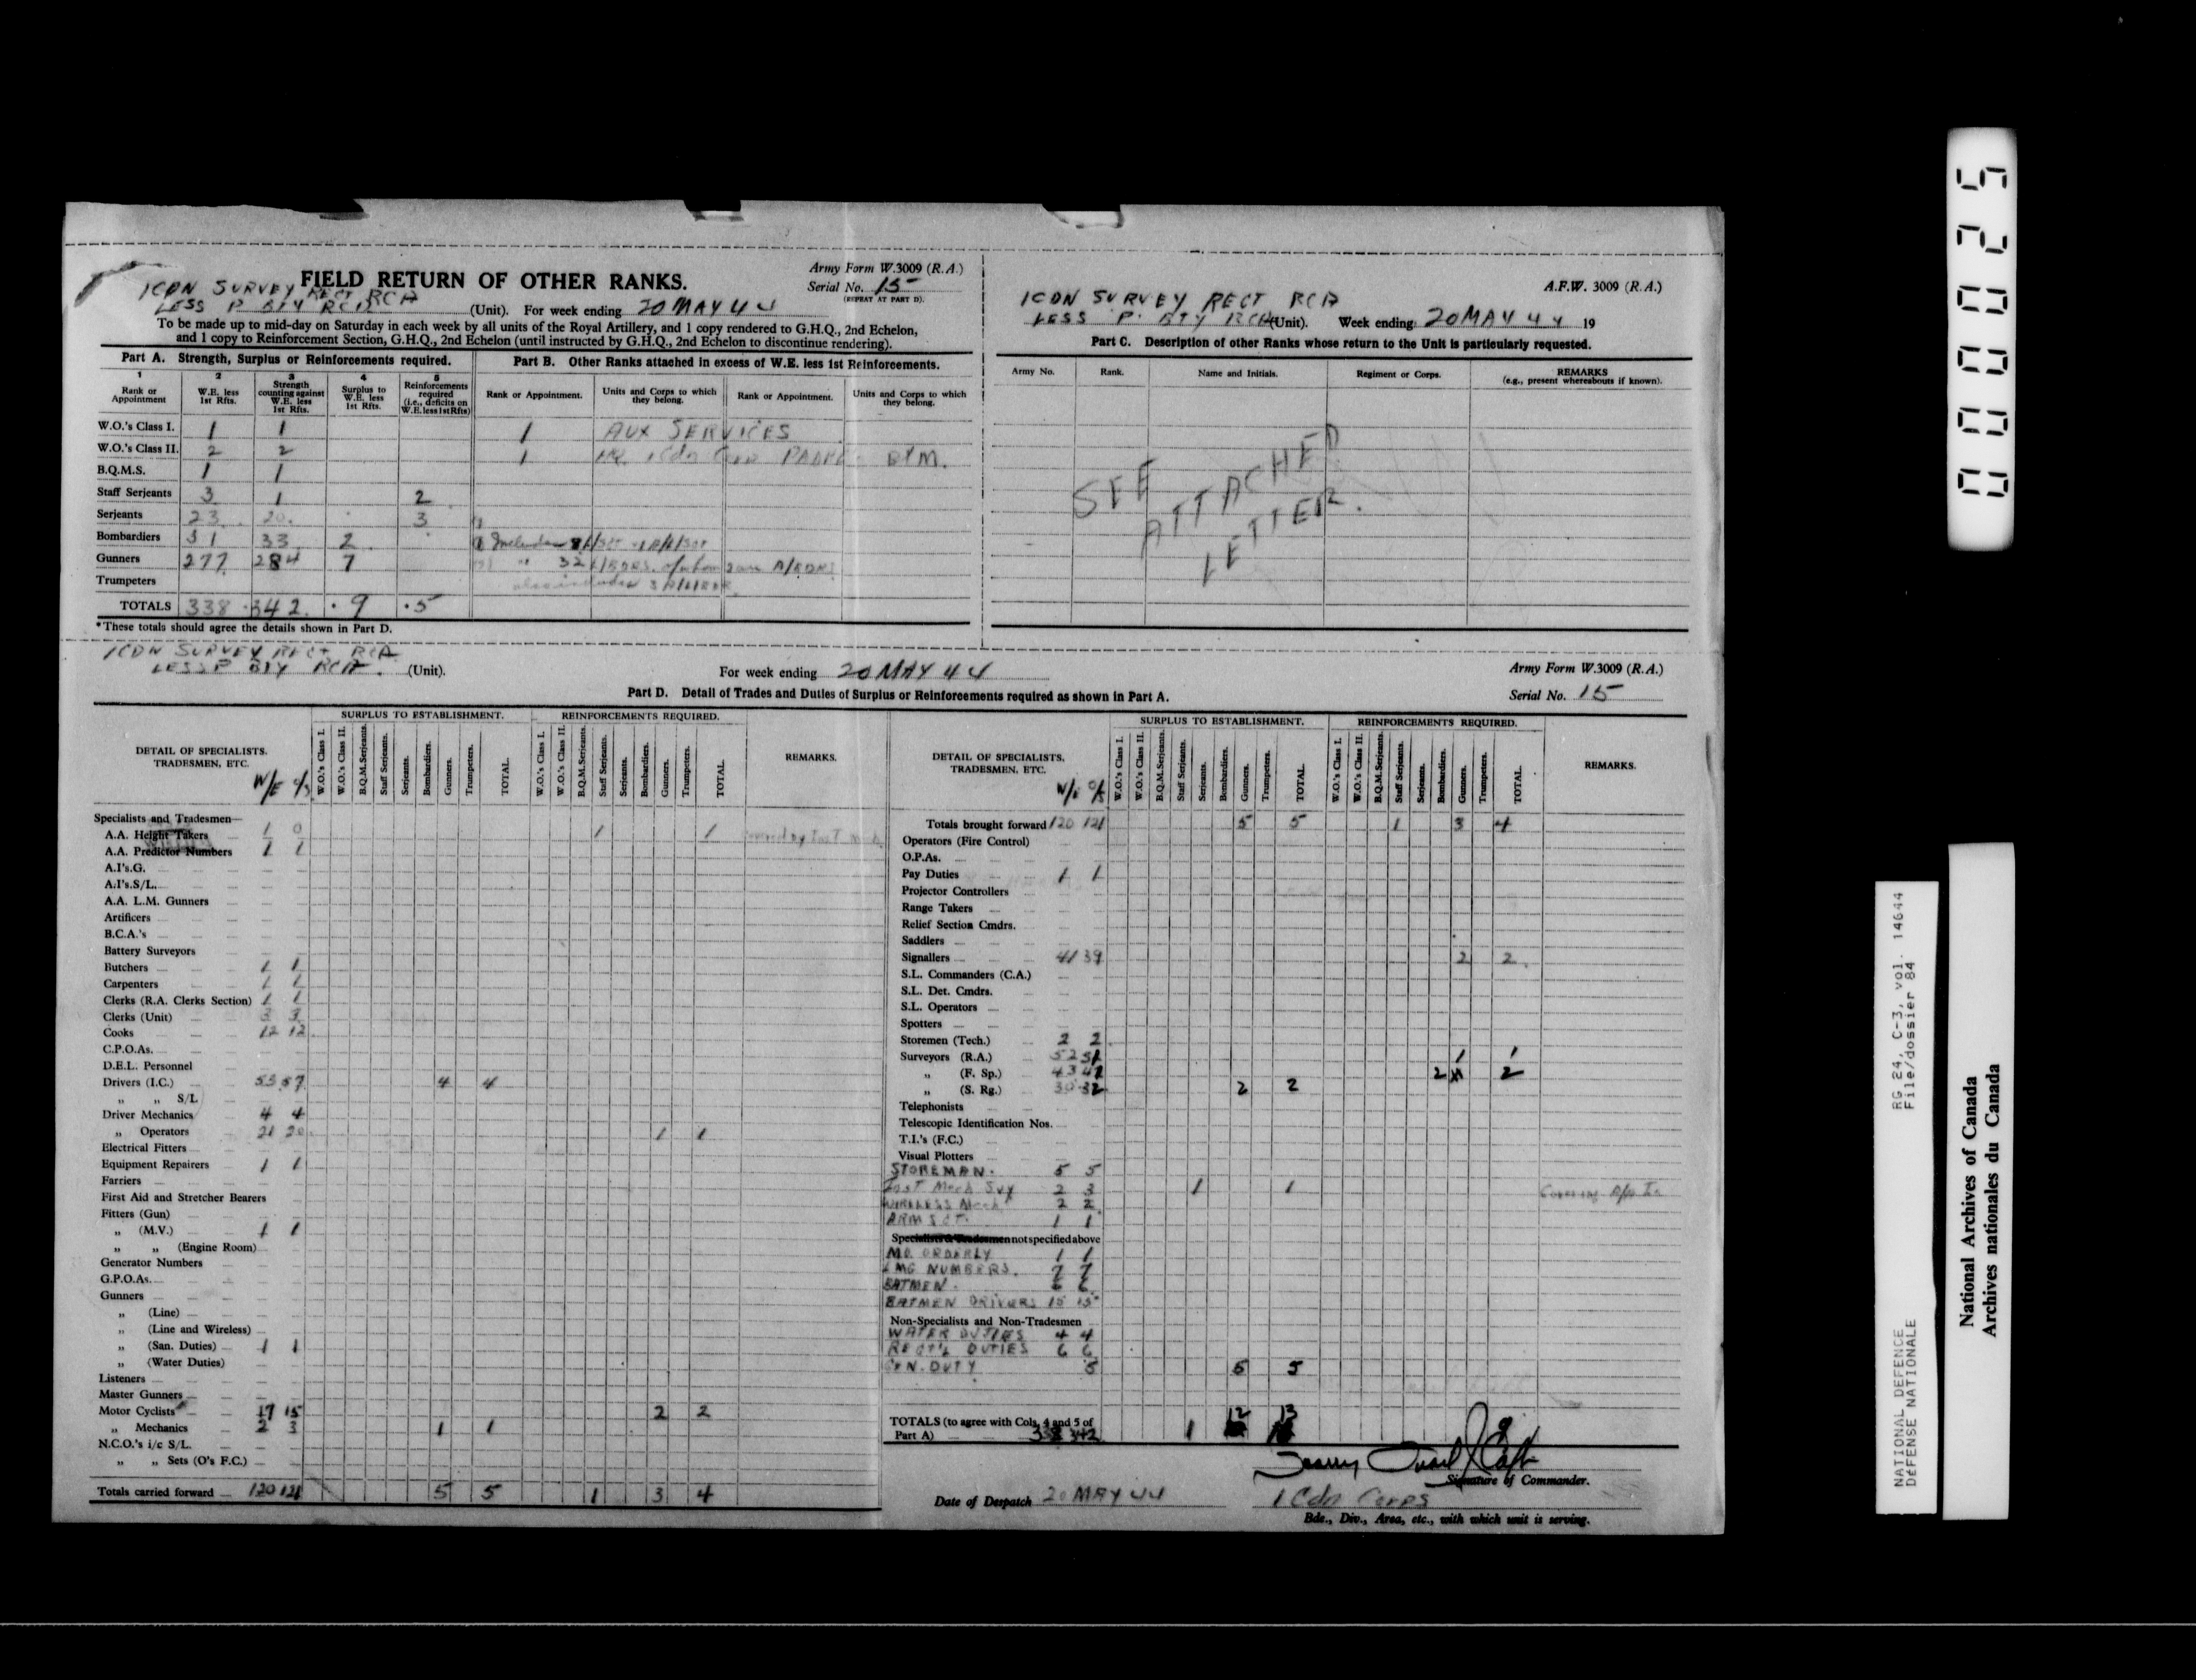 FIELD RETURN OF OTHER RANKS.
Army Form W.3009 (R.A.)
Serial No. 15
(REPEAT AT PART D).
1 CDN SURVEY REGT RCA
LESS P BTY RCA (Unit). For week ending 20 MAY 44
To be made up to mid-day on Saturday in each week by all units of the Royal Artillery, and 1 copy rendered to G.H.Q., 2nd Echelon,
and 1 copy to Reinforcement Section, G.H.Q., 2nd Echelon (until instructed by G.H.Q., 2nd Echelon to discontinue rendering).
Part A. Strength, Surplus or Reinforcements required.
1 2 3 4 5
Rank or Appointment
W.E. less 1st Rfts.
Strength counting against W.E. less 1st Rfts.
Surplus to W.E. less 1st Rfts.
Reinforcements required (i.e., deficits on W.E. less 1st Rfts)
W.O.'s Class I. 1 1
W.O.'s Class II. 2 2
B.Q.M.S. 1 1
Staff Serjeants 3 1 2
Serjeants 23 20 3
Bombardiers 31 33 2
Gunners 277 284 7
Trumpeters
TOTALS 338 342 9 5
*These totals should agree the details shown in Part D.
Part B. Other Ranks attached in excess of W.E. less 1st Reinforcements.
Rank or Appointment. Units and Corps to which they belong. Rank or Appointment. Units and Corps to which they belong.
1 AUX SERVICES
1 HQ 1 Cdn Corps
Includes
32 L/BDRS. of whom 2 are A/BDRS
also includes 3
A.F.W. 3009 (R.A.)
1 CDN SURVEY REGT RCA
LESS P. BTY RCA (Unit). Week ending 20 MAY 44 19
Part C. Description of other Ranks whose return to the Unit is particularly requested.
Army No. Rank. Name and Initials. Regiment or Corps. REMARKS (e.g., present whereabouts if known).
SEE
ATTACHED
LETTER.
1 CDN SURVEY REGT RCA
LESS P BTY RCA. (Unit). For week ending 20 MAY 44
Army Form W.3009 (R.A.)
Serial No. 15
Part D. Detail of Trades and Duties of Surplus or Reinforcements required as shown in Part A.
DETAIL OF SPECIALISTS, TRADESMEN, ETC.
W/E O/S
SURPLUS TO ESTABLISHMENT. REINFORCEMENTS REQUIRED.
W.O.'s Class I. W.O.'s Class II. B.Q.M.Serjeants. Staff Serjeants. Serjeants. Bombardiers. Gunners. Trumpeters. TOTAL.
W.O.'s Class I. W.O.'s Class II. B.Q.M.Serjeants. Staff Serjeants. Serjeants. Bombardiers. Gunners. Trumpeters. TOTAL.
REMARKS.
Specialists and Tradesmen—
A.A. Height Takers 1 0 1 1
A.A. Predictor Numbers 1 1
A.I's.G.
A.I's.S/L.
A.A. L.M. Gunners
Artificers
B.C.A.'s
Battery Surveyors
Butchers 1 1
Carpenters 1 1
Clerks (R.A. Clerks Section) 1 1
Clerks (Unit) 3 3
Cooks 12 12
C.P.O.As.
D.E.L. Personnel
Drivers (I.C.) 53 57 4 4
„ „ S/L
Driver Mechanics 4 4
„ Operators 21 20 1 1
Electrical Fitters
Equipment Repairers 1 1
Farriers
First Aid and Stretcher Bearers
Fitters (Gun)
„ (M.V.) 1 1
„ „ (Engine Room)
Generator Numbers
G.P.O.As.
Gunners
„ (Line)
„ (Line and Wireless)
„ (San. Duties) 1 1
„ (Water Duties)
Listeners
Master Gunners
Motor Cyclists 17 15 2 2
„ Mechanics 2 3 1 1
N.C.O.'s i/c S/L.
„ „ Sets (O's F.C.)
Totals carried forward 120 121 5 5 1 3 4
DETAIL OF SPECIALISTS, TRADESMEN, ETC.
W/E O/S
SURPLUS TO ESTABLISHMENT. REINFORCEMENTS REQUIRED.
W.O.'s Class I. W.O.'s Class II. B.Q.M.Serjeants. Staff Serjeants. Serjeants. Bombardiers. Gunners. Trumpeters. TOTAL.
W.O.'s Class I. W.O.'s Class II. B.Q.M.Serjeants. Staff Serjeants. Serjeants. Bombardiers. Gunners. Trumpeters. TOTAL.
REMARKS.
Totals brought forward 120 121 5 5 1 3 4
Operators (Fire Control)
O.P.As.
Pay Duties 1 1
Projector Controllers
Range Takers
Relief Section Cmdrs.
Saddlers
Signallers 41 39 2 2
S.L. Commanders (C.A.)
S.L. Det. Cmdrs.
S.L. Operators
Spotters
Storemen (Tech.) 2 2
Surveyors (R.A.) 52 51 1 1
„ (F. Sp.) 43 41 2 2
„ (S. Rg.) 30 32 2 2
Telephonists
Telescopic Identification Nos.
T.I.'s (F.C.)
Visual Plotters
STOREMAN. 5 5
Inst Mech Svy 2 3 1 1 Covering
WIRELESS Mech 2 2
ARM SGT. 1 1
Specialists & Tradesmen not specified above
M.O. ORDERLY 1 1
LMG NUMBERS. 7 7
BATMEN. 6 6
BATMEN DRIVERS 15 15
Non-Specialists and Non-Tradesmen
WATER DUTIES 4 4
REGT'L DUTIES 6 6
GEN. DUTY 5 5 5
TOTALS (to agree with Cols. 4 and 5 of Part A) 338 342 1 12 13 9
Capt
Signature of Commander.
Date of Despatch 20 MAY 44
1 Cdn Corps
Bde., Div., Area, etc., with which unit is serving.
000025
RG 24, C-3, vol. 14644
File/dossier 84
NATIONAL DEFENCE
DÉFENSE NATIONALE
National Archives of Canada
Archives nationales du Canada